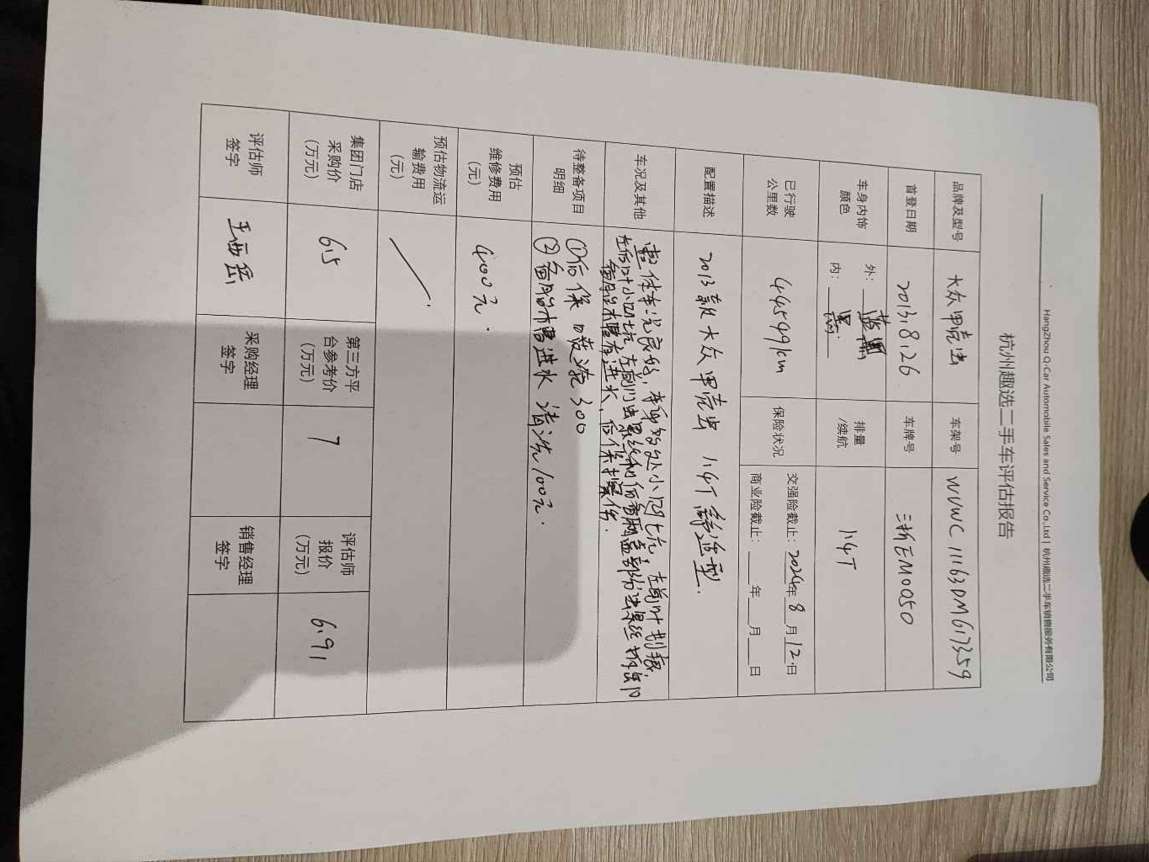 HangZhou Q-Car Automobile Sales and Service Co.,Ltd | 杭州趣选二手车销售服务有限公司
杭州趣选二手车评估报告
品牌及型号 大众甲壳虫 车架号 WVWC11163DM617359
首登日期 2013.8.26 车牌号 浙EM0050
车身内饰颜色 外: 蓝黑 内: 黑 排量/续航 1.4T
已行驶公里数 44599km 保险状况 交强险截止: 2024年8月12日
商业险截止: 年 月 日
配置描述 2013款大众甲壳虫 1.4T 舒适型.
车况及其他 整体车况良好, 车身多处小凹坑, 左前叶划痕,
左后叶小凹坑, 左前门
备胎槽有进水, 后保损伤.
待整备项目明细 ①后保喷漆300
②备胎槽进水 清洗100元.
预估维修费用(元) 400元.
预估物流运输费用(元) /
集团门店采购价(万元) 6.5 第三方平台参考价(万元) 7 评估师报价(万元) 6.91
评估师签字 王西岳 采购经理签字 销售经理签字